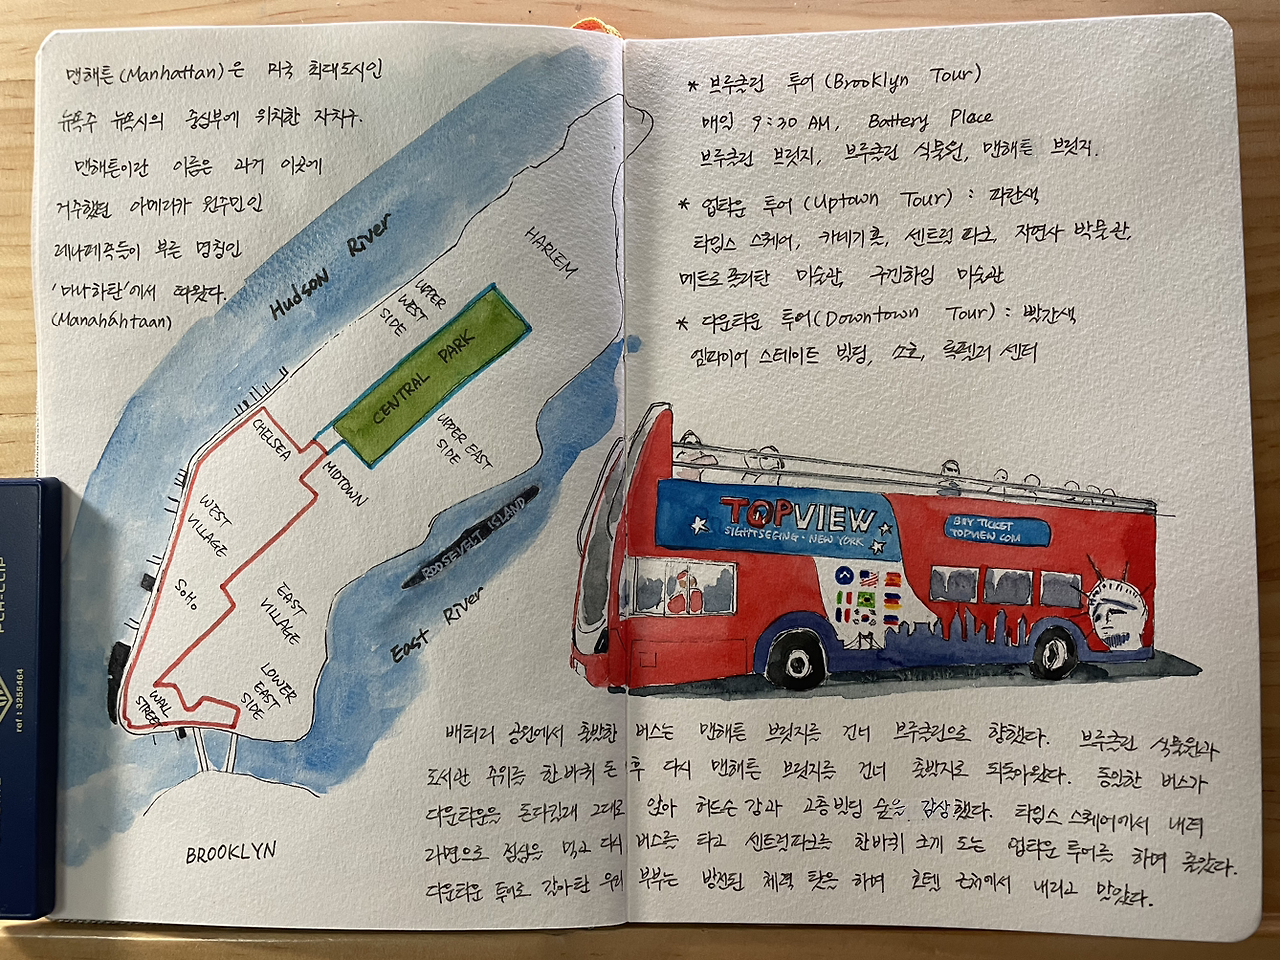 맨해튼(Manhattan)은 미국 최대도시인
뉴욕주 뉴욕시의 중심부에 위치한 자치구.
맨해튼이란 이름은 과거 이곳에
거주했던 아메리카 원주민인
레나페족들이 부른 명칭인
'마나하탄'에서 따왔다.
(Manaháhtaan)
Hudson River
HARLEM
UPPER
WEST
SIDE
CENTRAL PARK
UPPER EAST
SIDE
CHELSEA
MIDTOWN
WEST
VILLAGE
SoHo
EAST
VILLAGE
ROOSEVELT ISLAND
East River
LOWER
EAST
SIDE
WALL
STREET
BROOKLYN
* 브루클린 투어(Brooklyn Tour)
매일 9:30 AM, Battery Place
브루클린 브릿지, 브루클린 식물원, 맨해튼 브릿지.
* 업타운 투어(Uptown Tour) : 파란색
타임스 스퀘어, 카네기홀, 센트럴파크, 자연사 박물관,
메트로폴리탄 미술관, 구겐하임 미술관
* 다운타운 투어(Downtown Tour) : 빨간색
엠파이어 스테이트 빌딩, 소호, 록펠러 센터
TOPVIEW
SIGHTSEEING · NEW YORK
BUY TICKET
TOPVIEW.COM
배터리 공원에서 출발한 버스는 맨해튼 브릿지를 건너 브루클린으로 향했다. 브루클린 식물원과
도서관 주위를 한바퀴 돈 후 다시 맨해튼 브릿지를 건너 출발지로 되돌아왔다. 동일한 버스가
다운타운을 돈다길래 그대로 앉아 허드슨강과 고층빌딩 숲을 감상했다. 타임스 스퀘어에서 내려
라면으로 점심을 먹고 다시 버스를 타고 센트럴파크를 한바퀴 크게 도는 업타운투어를 하며 졸았다.
다운타운 투어로 갈아탄 우리 부부는 방전된 체력 탓을 하며 호텔 근처에서 내리고 말았다.
ref : 3255464